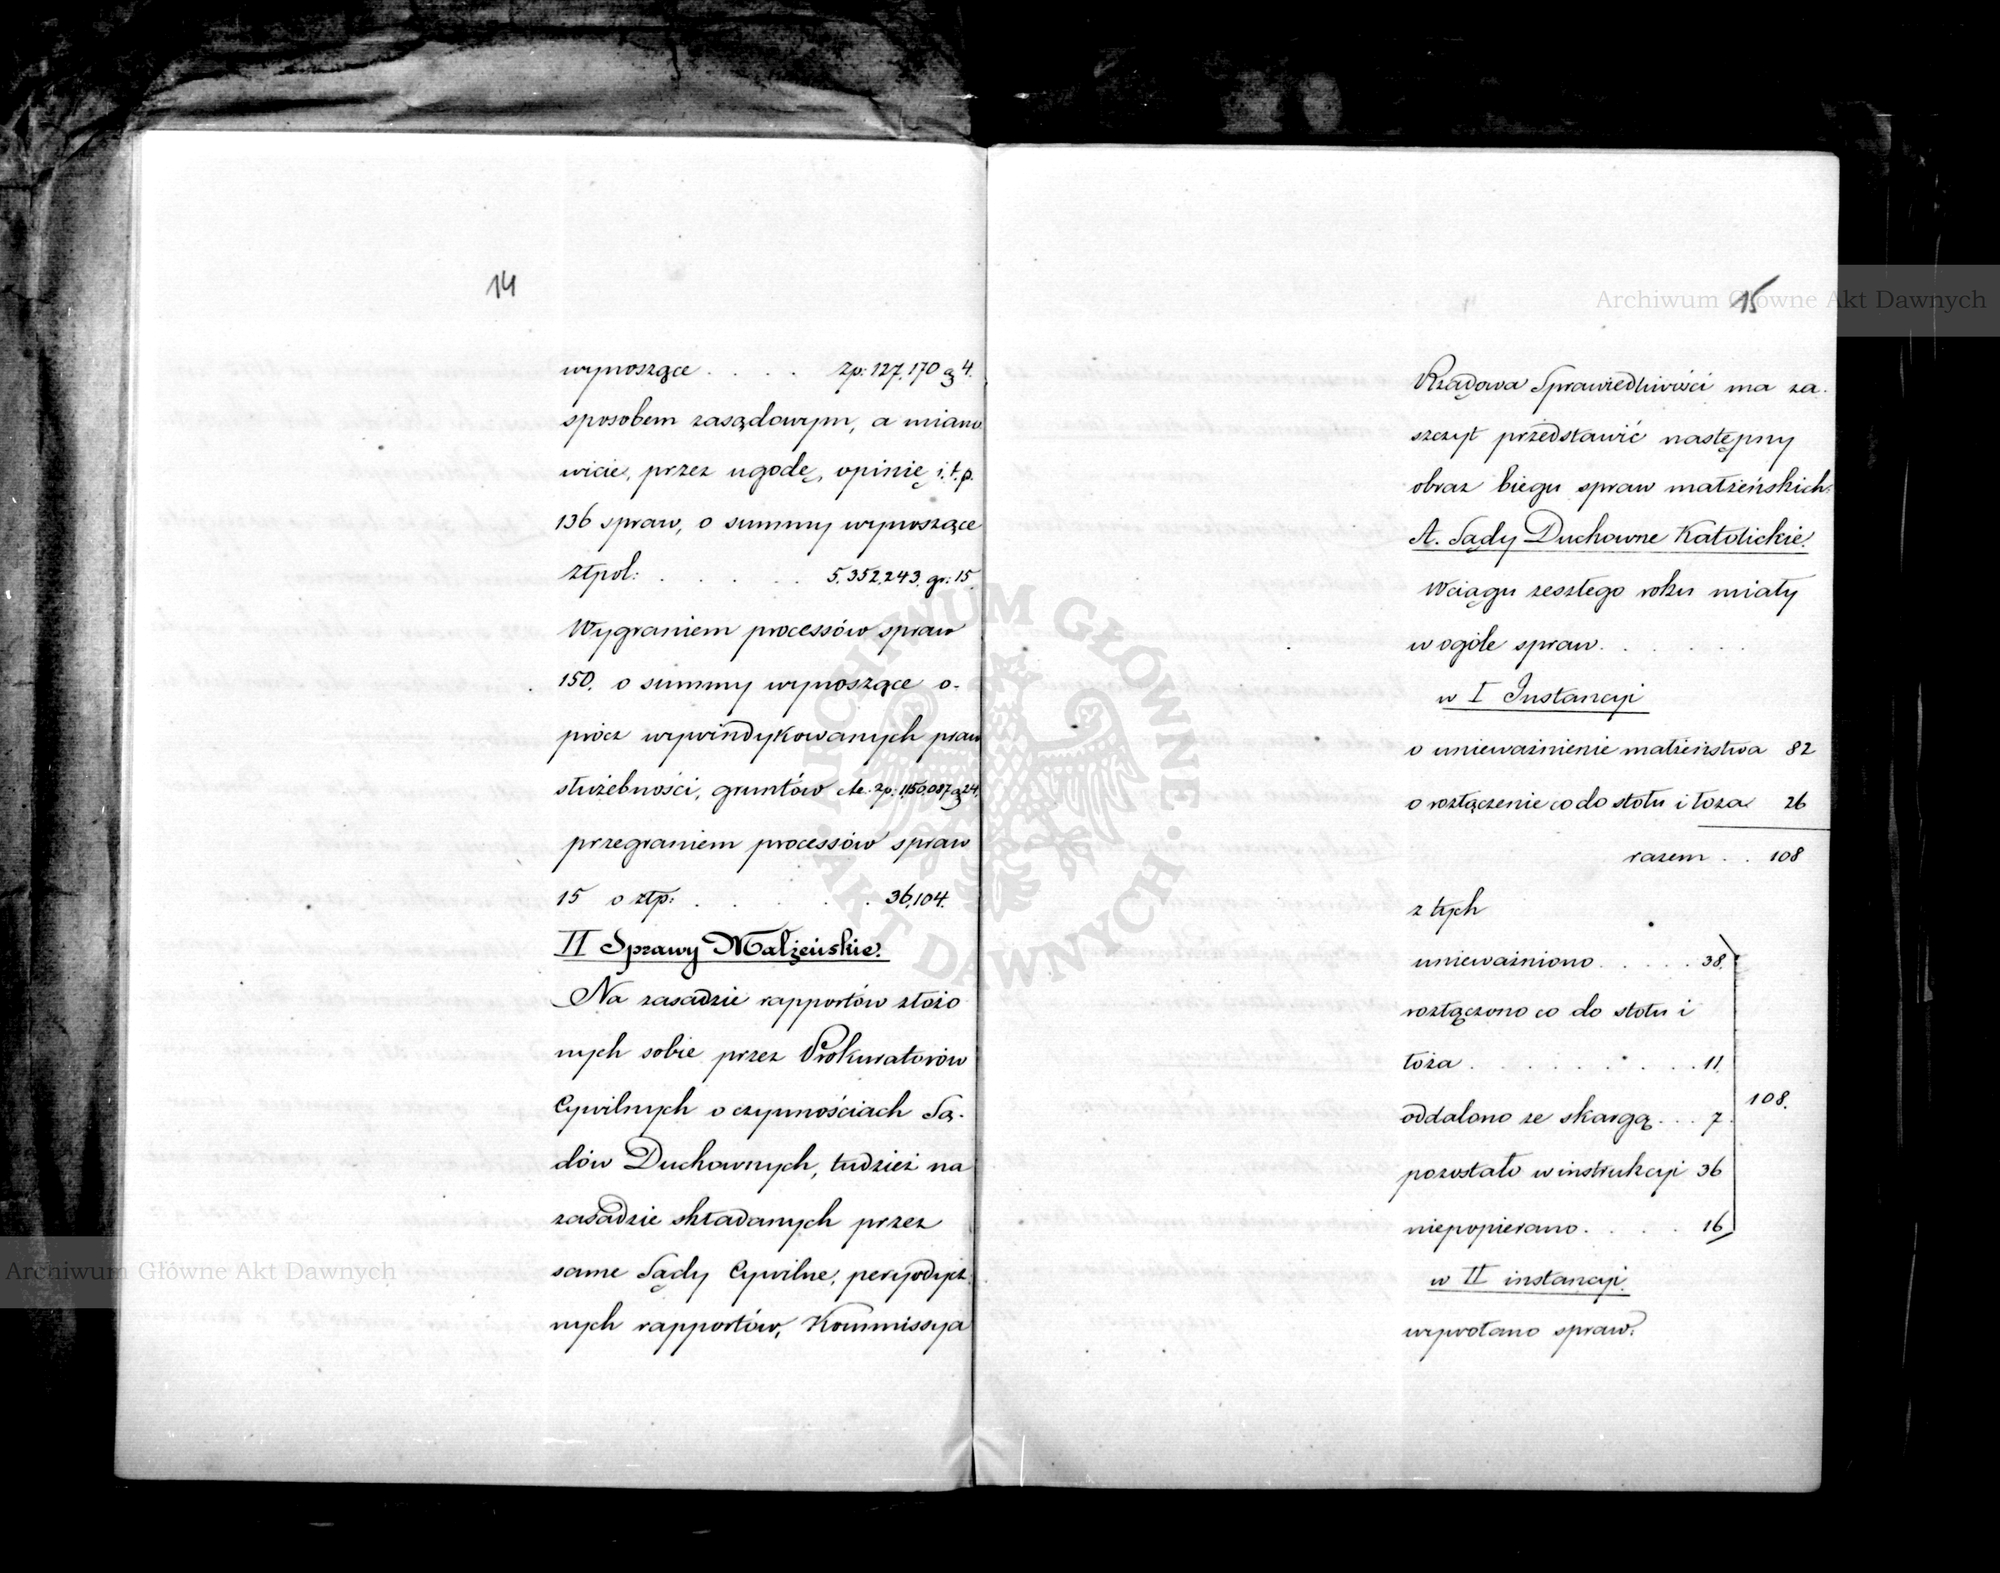 14
wynoszące . . . . zp: 127,170 g 4.
sposobem zasądowym, a miano
wicie, przez ugodę, opinię i.t.p.
136 spraw, o summy wynoszące
złpol: . . . . . 5.352.243. gr: 15
Wygraniem processów spraw
150. o summy wynoszące o-
prócz wywindykowanych praw
służebności, gruntów etc. zp: 1,150,087 g 24.
przegraniem processów spraw
15 o złp: . . . . . 36,104.
II Sprawy Małżeńskie.
Na zasadzie rapportów złożo
nych sobie przez Prokuratorów
Cywilnych o czynnościach Są-
dów Duchownych, tudzież na
zasadzie składanych przez
same Sądy Cywilne, peryodycz
nych rapportów, Kommissya
15
Rządowa Sprawiedliwości ma za-
szczyt przedstawić następny
obraz biegu spraw małżeńskich.
A. Sądy Duchowne Katolickie.
Wciągu zeszłego roku miały
w ogóle spraw. . . . . .
w I Instancyi
o unieważnienie małżeństwa 82
o rozłączenie co do stołu i łoża 26
razem . . 108
z tych
unieważniono . . . . . 38.
rozłączono co do stołu i
łoża . . . . . . . . . 11.
108.
oddalono ze skargą . . . 7.
pozostało w instrukcyi 36
niepopierano . . . . 16
w II instancyi.
wywołano spraw:
Archiwum Główne Akt Dawnych
Archiwum Główne Akt Dawnych
ARCHIWUM GŁÓWNE · AKT DAWNYCH ·